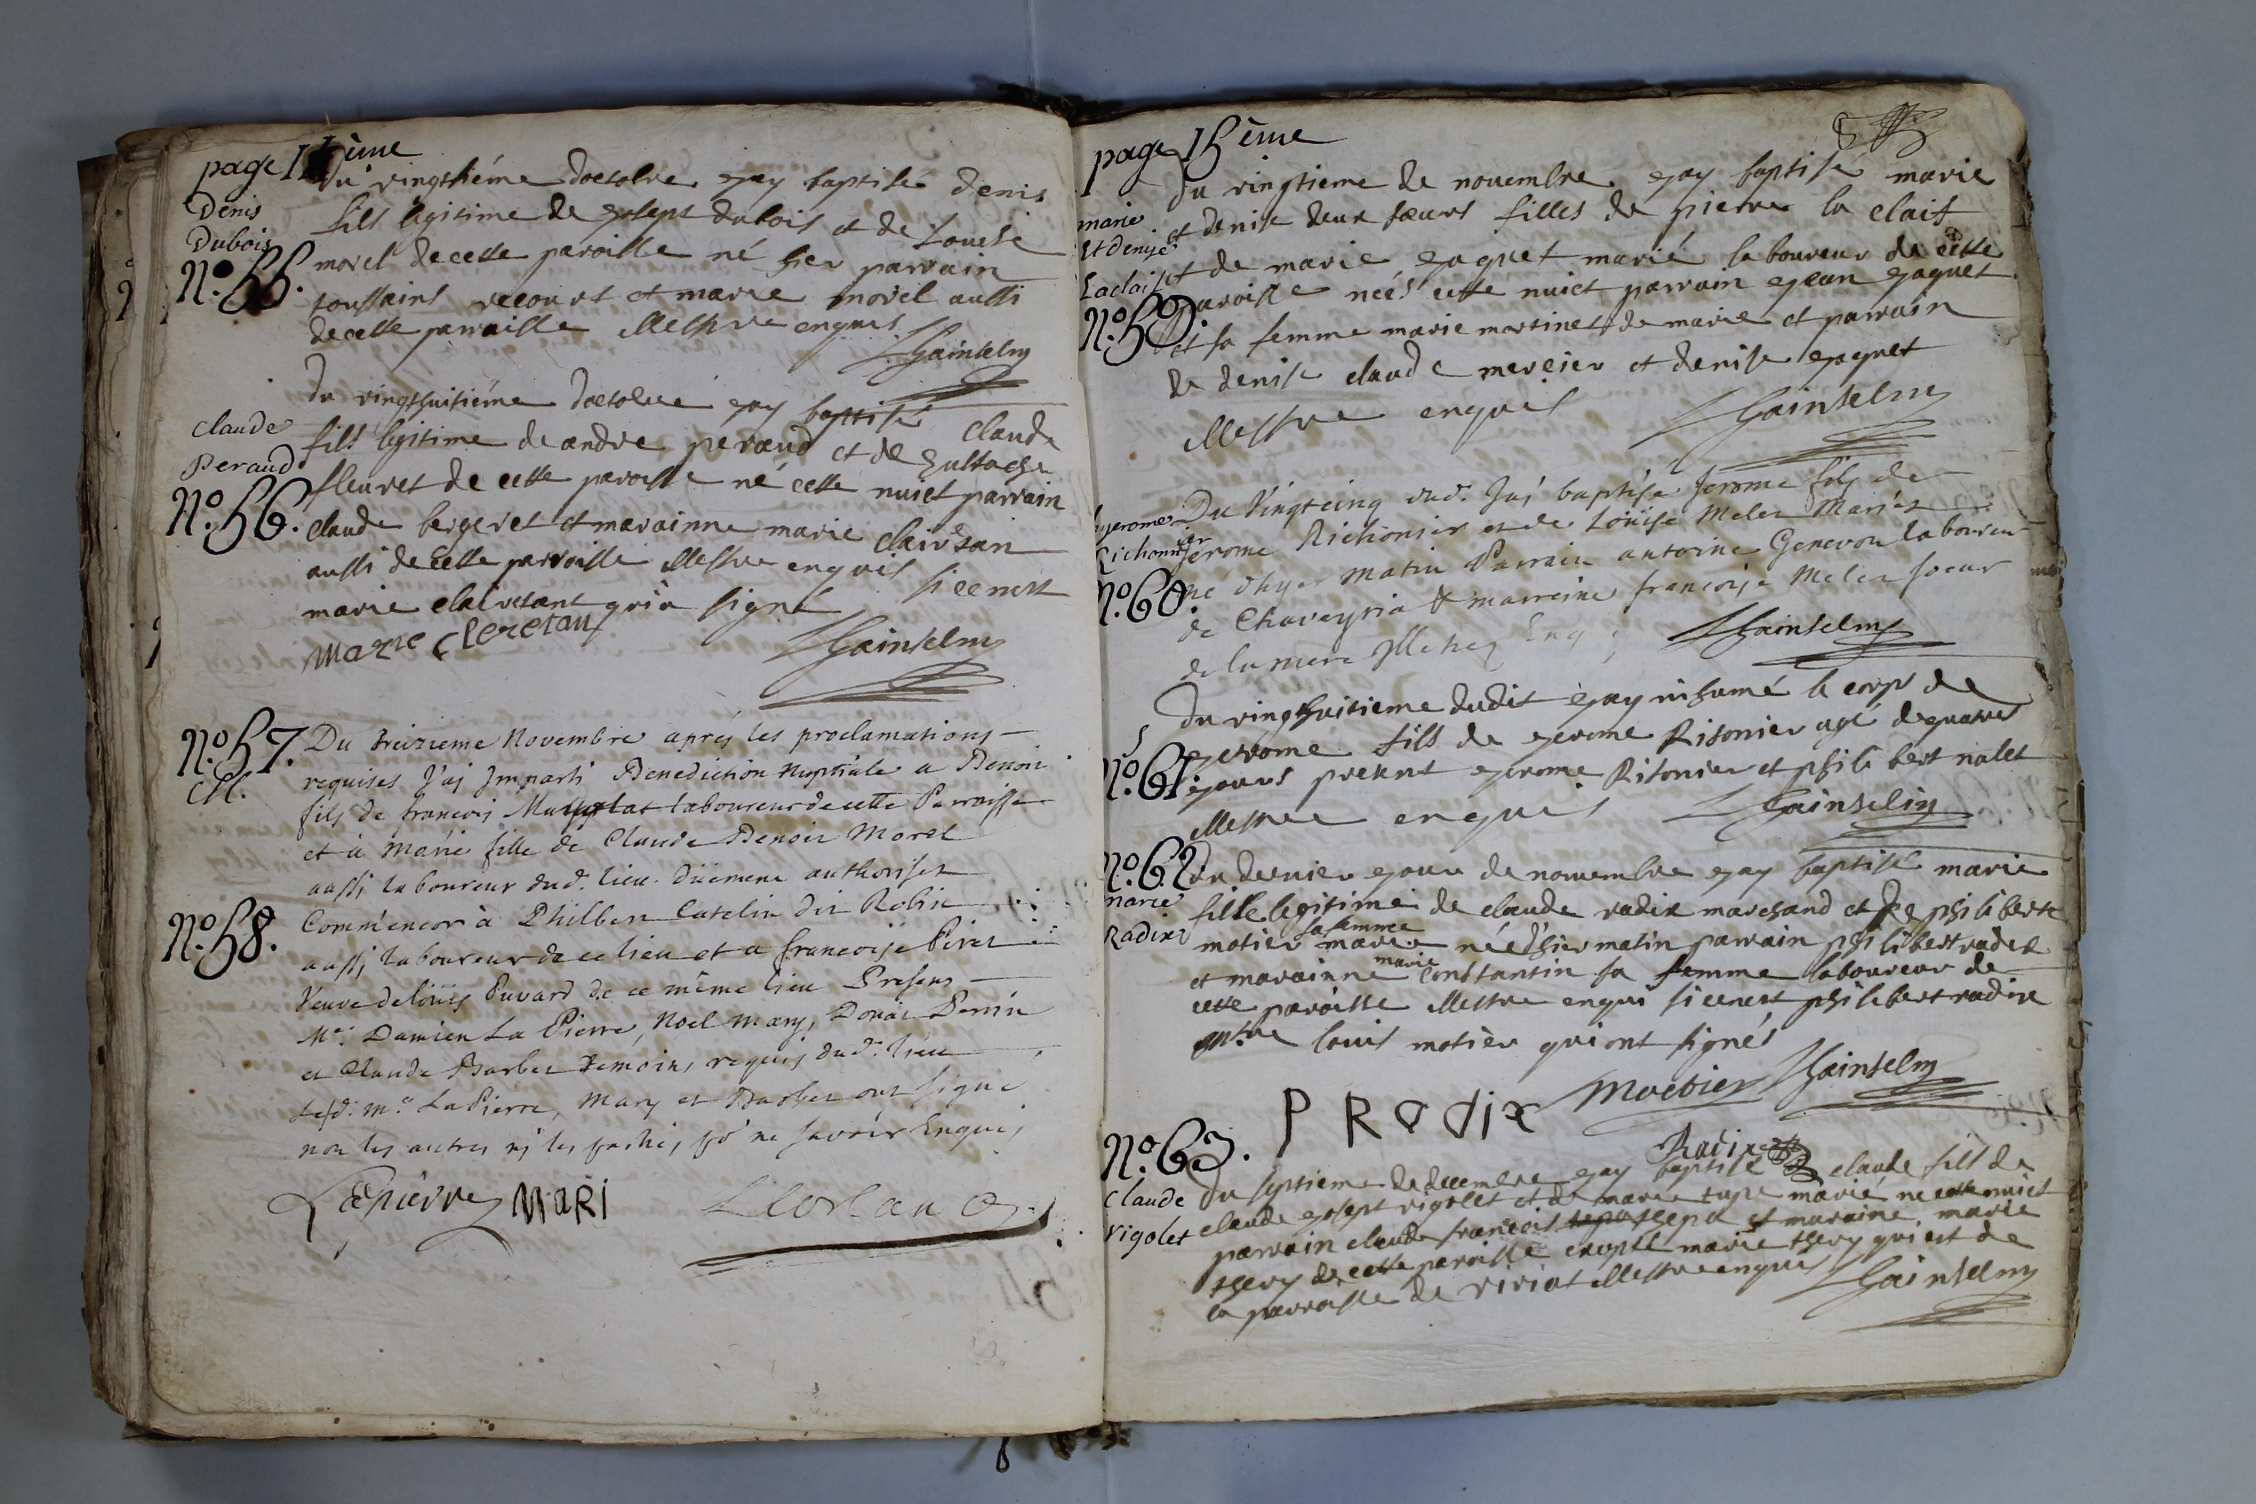 page 14ème
Denis
Dubois
N.o 55.
Du vingthiéme doctobre gay baptisé denis
fils legitime de gosept dubois et de Louise
morel de cette paroisse né hier parrain
toussaint recourt et marie morel aussi
de cette parroisse illestre enquis
J Gainselin
Claude
Peraud
N.o 56.
du vingthuitiéme doctobre gay baptisé claude
fils legitime de andre peraud et de Eustache
fleuret de cette paroisse né cette nuict parrain
claude bergeret et marainne marie clairetan
aussi de cette parroisse illestre enquis si cenest
marie clairetant qui a signé
Marie Cleretan
J Gainselin
N.o 57.
M.
Du treizieme Novembre aprés les proclamations
requises J'aj Jmparti Benediction Nuptiale a Benoit
fils de françois laboureur de cette Parroisse
et à Marie fille de Claude Benoit Morel
aussj laboureur dud. lieu düement authorisez
N.o 58.
Comm'encor à Philbert Catelin dit Robin
aussj laboureur de ce lieu et a francoise Piret
Veuve de loüis Puvard de ce même lieu Presens
Mr. Damien La Pierre, Noel Mary, Perrin
et Claude Barbet temoins requis dud. lieu
Lesd. Mr. La Pierre, Mary et Barbet ont signé
non les autres nj les parties pr ne savoir Enquis
Lapierre MARI
page 15ème
marie
Et denise
Laclaist
N.o 59.
du vingtieme de novembre gay baptisé marie
et denise deux sœurs filles de pierre la claist
et de marie gaquet marié laboureur de cette
paroisse neés cette nuict parrain gean gaquet
et sa femme marie martinet de marie et parrain
de denise claude mercier et denise gaquet
illestre enquis J Gainselin
gerome
Richonnier
N.o 60.
Du Vingtcinq dud. Jaj baptisé Jerome fils de
Jerome Richonier et de Loüise Melet Mariés
né d'hyer matin Parrain antoine Genevou laboureur
de Chaveyria & marreine françoise Melet soeur
de la mere Jlletrez Enq. J Gainselin
N.o 61.
du vingthuitieme dudit gay inhumé le corps de
gerome fils de gerome Risonier agé de quatres
gours present gerome Risonier et philibert nalet
illestre enquis J Gainselin
N.o 62
marie
Radix
du dernier gour de nouvembre gay baptisé marie
fille legitime de claude radix marchand et de philiberte
motier sa femme née d'hier matin parrain philibert radix
et marainne marie constantin sa femme laboureur de
cette paroisse illestre enqui si cenest philibert radix
louis motier qui ont signés
P RADIX Moetier J Gainselin
Radix
N.o 63.
claude
rigolet
du septieme de decembre gay baptisé claude fils de
claude gosept rigolet et de marie tupe marié né cette nuict
parrain claude francois et maraine marie
thevy de cette paroisse excepté marie thevy qui est de
la parroisse de viriat illestre enquis J Gainselin